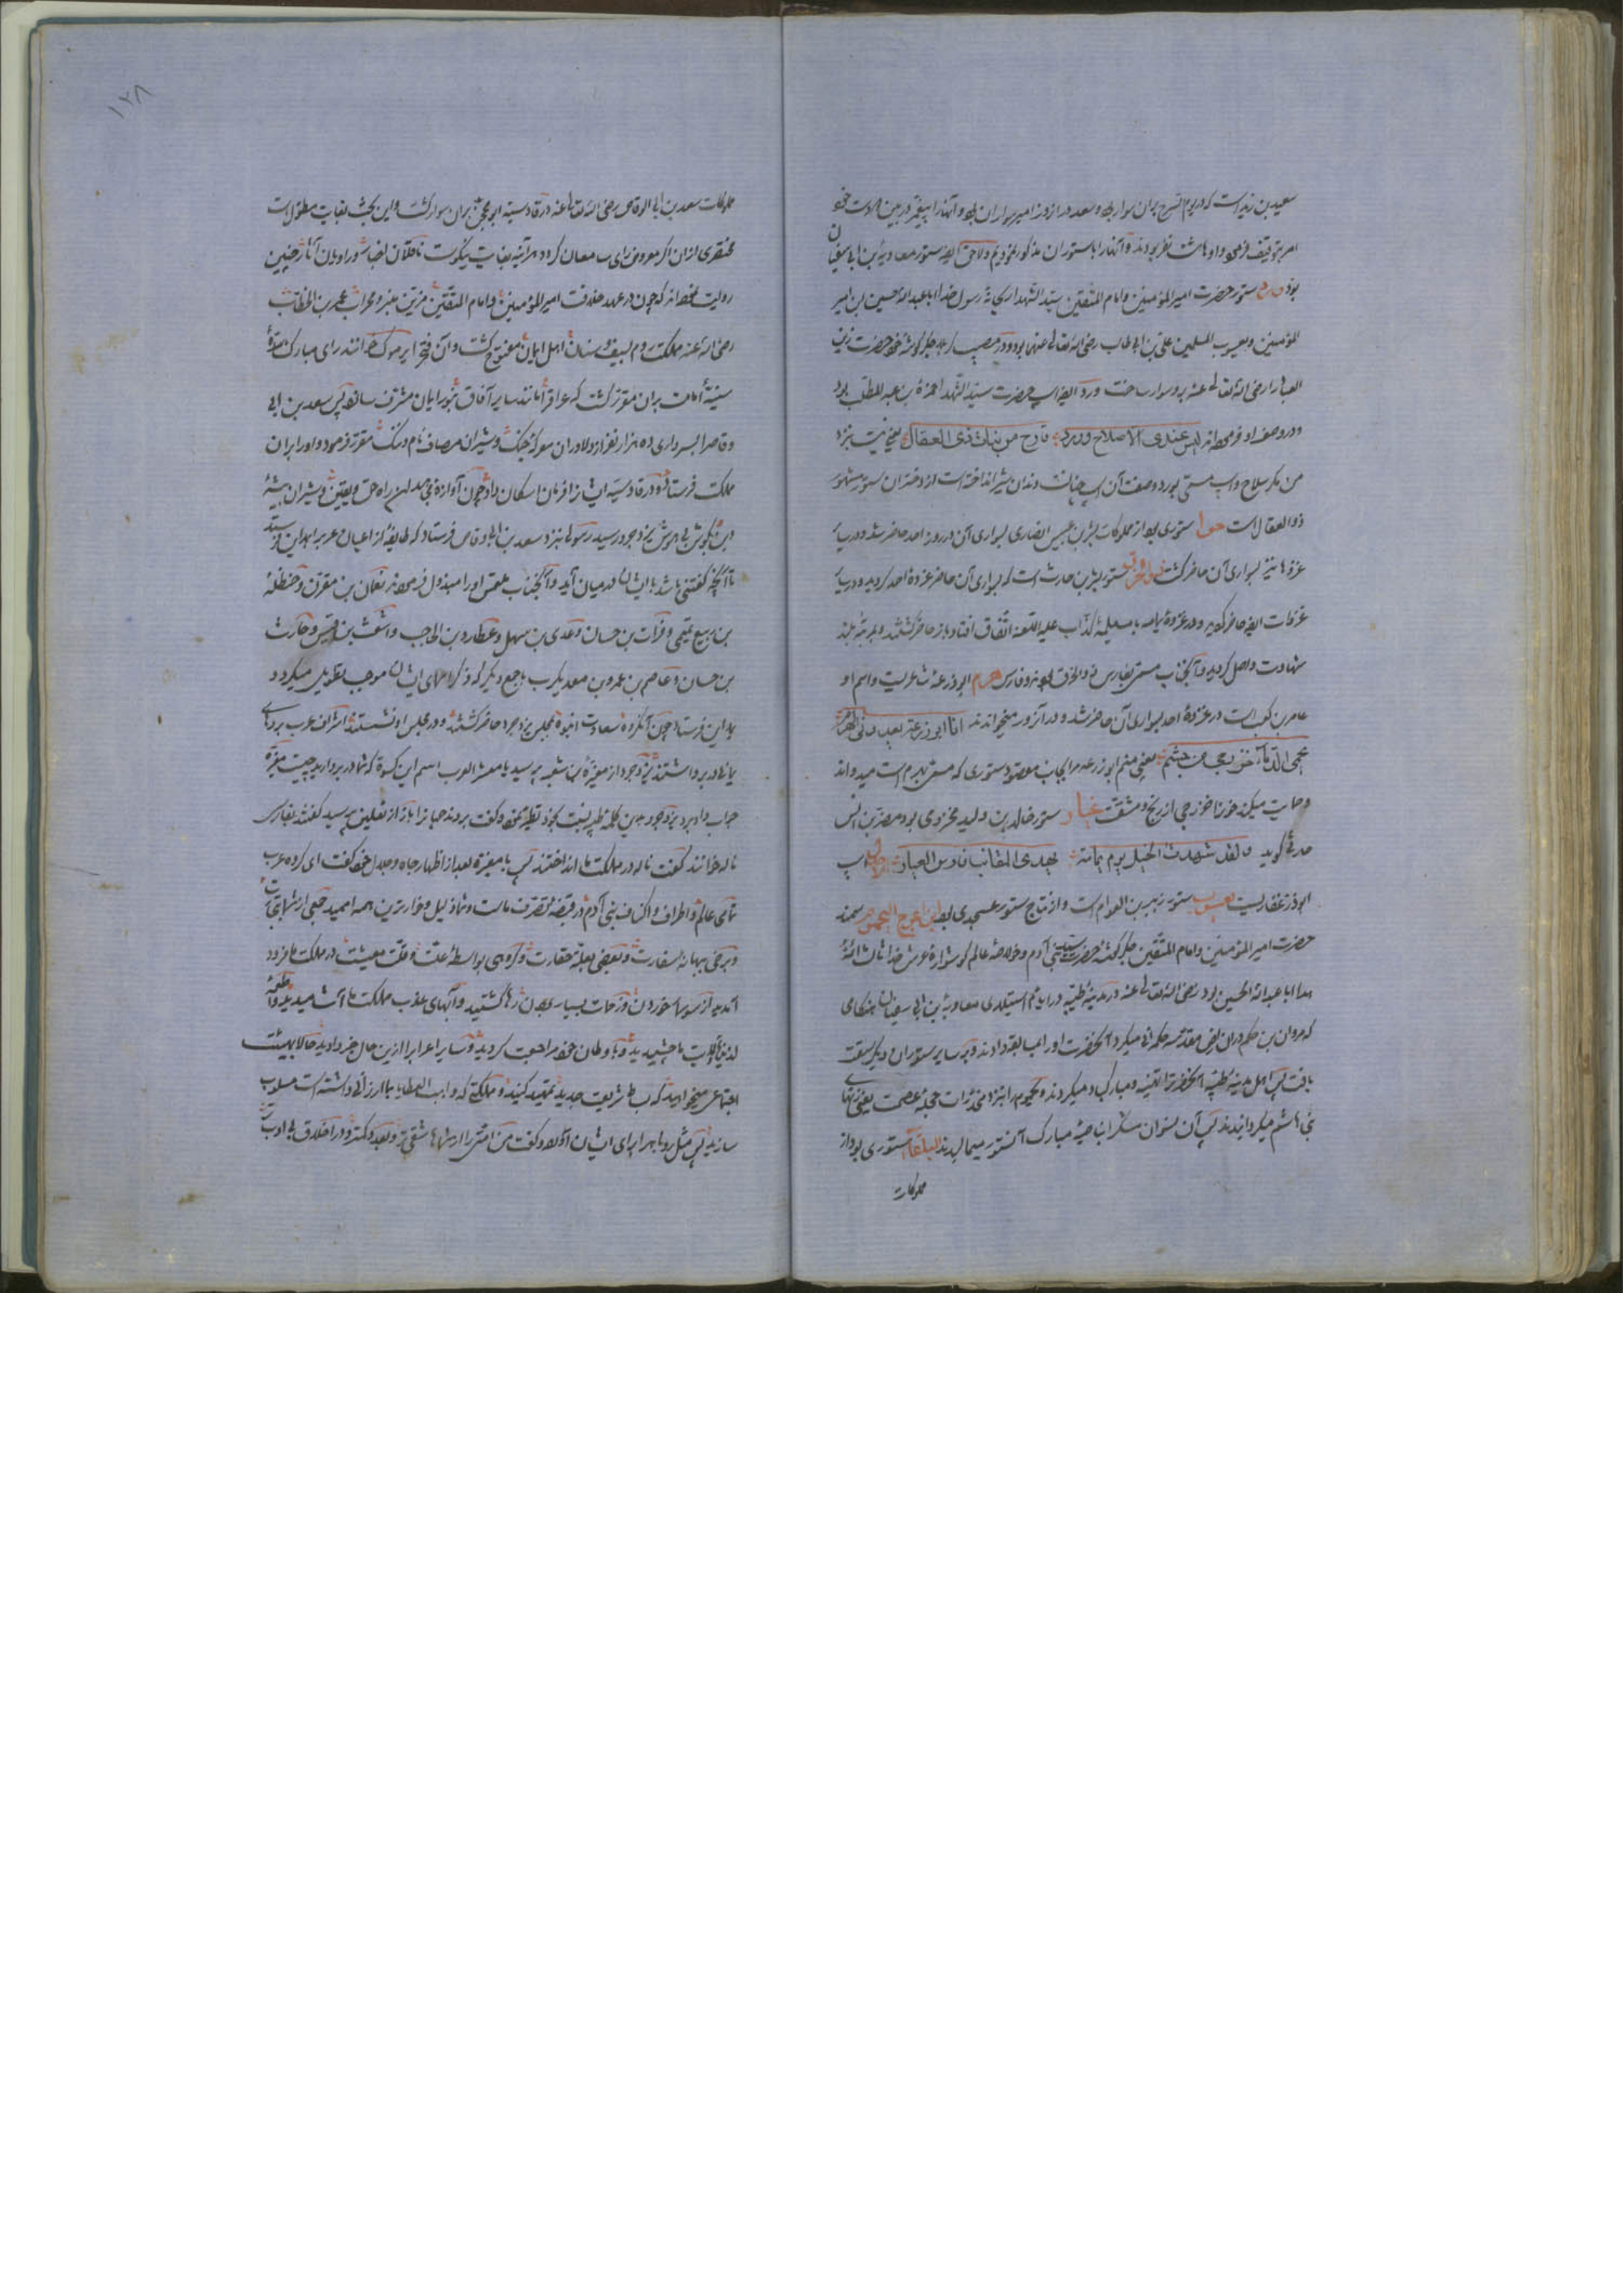 سعیدبن زید است که در یوم السرح بران سوار بود و سعد در ان روز امیر سواران بود و آنهارا پیغمبر در بین
امر بتوقیف فرمود و اوها هشت نفر بودند و آنهارا با ستوران مذکور نمودیم و لاحق ایضا ستور معاویة بن ابی سفیان
بود ستور حضرت امیرالمؤمنین و امام المتقین سید الشهدا ریحانهٔ رسول خدا ابا عبدالله حسین ابن امیر
المؤمنین و یعسوب المسلمین علی بن ابی طالب رضی الله تعالی عنهما بود و در جگر گوشهٔ خود حضرت زین
العباد را رضی الله تعالی عنه برو سوار ساخت و ورد ایضا اسپ حضرت سید الشهدا حمزة بن عبد المطلب بود
و در وصف او فرموده اند لیس عندی الا سلاح و ورد قارح من بنات ذی العقال یعنی نیست بنزد
من مگر سلاح و اسپ مسمی بورد وصفت آن اسپ چنانست دندان شیر انداخته است از دختران ستور مشهور
ذوالعقال است حوا ستوری بود از مملوکات بشر بن عنبس انصاری بسواری آن در روز احد حاضر شد و در سایر
غزوها نیز بسواری آن حاضر گشت ذوالخرق ستور بشر بن حارث است که بسواری آن حاضر غزوهٔ احد گردید و در سایر
غزوات ایضا حاضر گردید و در غزوهٔ یمامه با مسیلمهٔ کذاب علیه اللعنه اتفاق افتاد باز حاضر گشتند و بمرتبهٔ بلند
شهادت واصل گردید و آنجناب مسمی بفارس ذوالخرق بودند و فارس هرم ابو زعنه شاعریست و اسم او
عامر بن کعب است در غزوهٔ احد بسواری آن حاضر شد و در آنروز میخواندند انا ابو زعنه یعدو بی الهرم
یحمی الذمار خزرجی من جشم یعنی منم ابو زعنه مرا بجانب مقصود ستوری که مسمی بهرم است میدواند
و حمایت میکند خود را خزرجی از رنج و مشقت عیار ستور خالد بن ولید مخزومی بود مضرس بن انس
گوید و لقد شهدت الخیل یوم یمامة یهدی المقانب فارس العیار اسپ
ابوذر غفاریست یعسوب ستور زبیر بن العوام است و از نتاج ستور عسجدی بود ابن اعوج الیحموم سمند
حضرت امیرالمؤمنین و امام المتقین جگر گوشهٔ حضرت سید بنی آدم و خلاصهٔ عالم گوشوارهٔ عرش خدا ثالث ائمهٔ
هدا ابا عبدالله الحسین بود رضی الله تعالی عنه در مدینهٔ طیبه در ایام استیلای معاویة بن ابی سفیان هنگامی
که مروان بن حکم دران ارض مقدسه حکمرانی میکرد آنحضرت اورا مسابقه دادند و بر سایر ستوران دیگر سبقت
یافت پس اهل مدینهٔ طیبه آنحضرترا تهنیه و مبارکباد میکردند و یحموم را بنزد مخدرات حجلهٔ عصمت یعنی زنهای
بنی هاشم میگردانیدند پس آن نسوان مشکرا بناصیهٔ مبارک آنستور میمالیدند البلقا ستوری بود از
مملوکات
١٢٨
مملوکات سعد بن ابی الوقاص رضی الله تعالی عنه در قادسیه ابو محجن بران سوار گشت و این بحث بغایت مطول است
مختصری ازان اگر معروض رای سامعان گردد هر آئینه بغایت نیکوست ناقلان اخبار و راویان آثار چنین
روایت نموده اند که چون در عهد خلافت امیرالمؤمنین و امام المتقین مزین منبر و محراب عمر بن الخطاب
رضی الله عنه مملکت روم بسیف و سنان اهل ایمان مفتوح گشت و آن فتحرا یرموک خوانند رای مبارک سدهٔ
سنیهٔ امامت بران مقرر گشت که عراقرا مانند سایر آفاق بنور ایمان مشرف سازد پس سعد بن ابی
وقاصرا بسرداری ده هزار نفر از دلاوران معرکه جنگ و شیران مصاف نام و ننگ مقرر فرمود و اورا بران
مملکت فرستاد و در قادسیه ایشانرا فرمان اسکان داد چون آوازهٔ مجاهدین راه حق و یقین و شیران بیشهٔ
دین بگوش بی هوش یزدجرد رسید رسولی بنزد سعد بن ابی وقاص فرستاد که طایفهٔ از اعیان عربرا بمداین فرستد
تا آنچه گفتنی باشد با ایشان در میان آید و آنجناب ملتمس اورا مبذول فرموده نعمان بن مقرن و حنظلهٔ
بن ربیع تمیمی و فرات بن حسان و عدی بن سهل و عطارد بن الحاجب و اشعث بن قیس و حارث
بن حسان و عاصم بن عمرو بن معد یکرب با جمع دیگر که ذکر نامهای ایشان موجب تطویل میگردد
بمداین فرستاد چون آنگروه سعادت انبوه بمجلس یزدجرد حاضر گشتند و در مجلس او نشستند اشراف عرب بردهای
یمانی در بر داشتند یزدجرد از مغیرة بن شعبه پرسید یا معشر العرب اسم این کسوة که شما در بر دارید چیست مغیره
جواب داد برد یزدجرد بدین کلمه طیرت بخود نموده گفت بردند جهانرا باز از نعلین پرسید گفتند بفارسی
ناله خوانند گفت ناله در مملکت ما انداختند پس با مغیره بعد از اظهار جاه و جلال خود گفت ای گروه عرب
تمامی عالم و اطراف و اکناف بنی آدم در قبضهٔ تصرف ماست و شما ذلیل و خوارترین همه اممید جمعی از شما بتجارت
و برخی ببهانهٔ سفارت و بعضی بعلة حقارت و گروهی بواسطهٔ علت و قلت معیشت در مملکت ما فرود
آمدید از سوسمار خوردن و زحمات بسیاری رها گشتید و آبهای عذب مملکت ما آشامیدید و اطعمهٔ
لذیذه ما چشیدید و باوطان خود مراجعت کردید و سایر اعرابرا ازین حال خبر دادید حالا بهیئت
اجتماعی میخواهید که بساط شریعت جدید تمهید کنید و مملکتی که واهب العطایا بما ارزانی داشته است مسلوب
سازید پس مثل روباهرا برای ایشان آورد و گفت من امتی را از شما شقی‌تر و بعدد کمتر و در اخلاق بی ادب تر